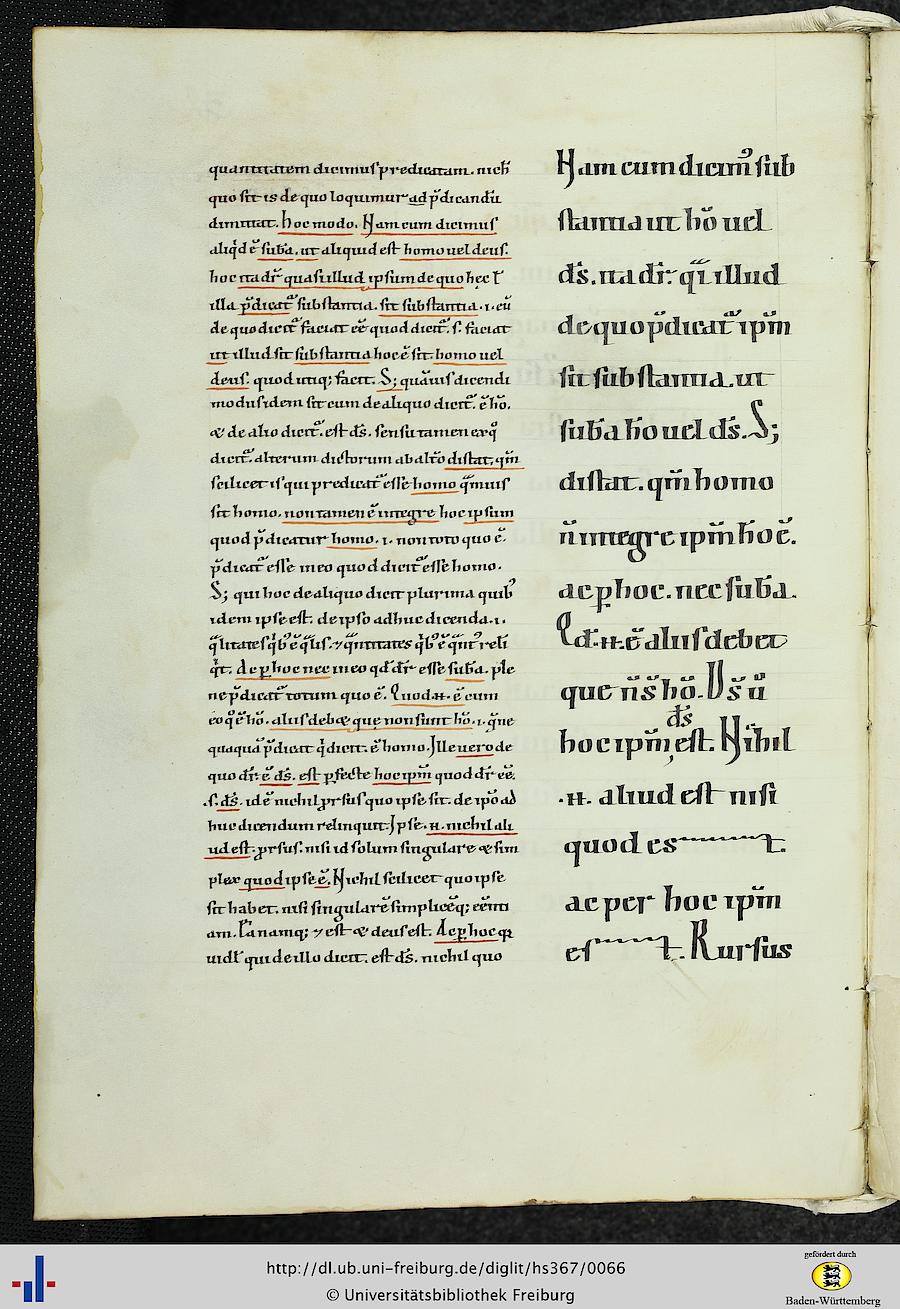 quantitatem dicimus predicatam. nich̄
quo sit is de quo loquimur ad p̄dicandū
dimittat. hoc modo. Nam cum dicimus
aliqd ē sub̄a. ut aliquid est homo uel deus.
hoc ita dr̄ quasi illud ipsum de quo hęc ł
illa p̄dicat̄ substantia. sit substantia .i. eū
de quo dicit̄ faciat eē quod dicit̄. s. faciat
ut illud sit substantia hoc ē sit. homo uel
deus. quod utiq; facit. S; quāuis dicendi
modus idem sit cum de aliquo dicit̄. ē hō.
& de alio dicit̄. est ds̄. sensu tamen
dicit̄. alterum dictorum ab altō distat. qm̄
scilicet is qui predicat̄ esse homo q̄muis
sit homo. non tamen ē integre hoc ipsum
quod p̄dicatur homo. .i. non toto quo ē.
p̄dicat̄ esse in eo quod dicit̄ esse homo.
S; qui hoc de aliquo dicit plurima quib;
idem ipse est. de ipso adhuc dicenda .i.
q̄litates qb; ē q̄lis. ⁊ q̄ntitates qb; ē q̄nt reli
q̄t. Ac ꝑ hoc nec in eo qd dr̄ esse sub̄a. ple
ne p̄dicat̄ totum quo ē. Quod .n. ē cum
eo q̄ ē hō. aliis deb& que non sunt hō. .i.
quaqua p̄dicat dicit. ē homo. Ille uero de
quo dr̄. ē ds̄. est ꝑfecte hoc ipm̄ quod dr̄ eē.
.s. ds̄. id ē nichil ꝓrsus quo ipse sit. de ipō ad
huc dicendum relinquit. Ipse .n. nichil ali
ud est. ꝓrsus. nisi id solum singulare & sim
plex quod ipse ē. Nichil scilicet quo ipse
sit habet. nisi singularē simplicēq; eēnti
am. Ea namq; ⁊ est & deus est. Ac ꝑ hoc q
uidē qui de illo dicit. est ds̄. nichil quo
Nam cum dicim; sub
stantia ut hō uel
ds̄. ita dr̄. qi illud
de quo p̄dicat̄ ipm̄
sit substantia. ut
sub̄a hō uel ds̄. S;
distat. qm̄ homo
n̄ integre ipm̄ hō ē.
ac ꝑ hoc. nec sub̄a.
Qd .n. ē aliis debet
que n̄ s̄ hō. Ds̄ ū
hoc ipm̄ ds̄ est. Nihil
.n. aliud est nisi
quod es t.
ac per hoc ipm̄
es t. Rursus
http://dl.ub.uni-freiburg.de/diglit/hs367/0066
© Universitätsbibliothek Freiburg
gefördert durch
Baden-Württemberg